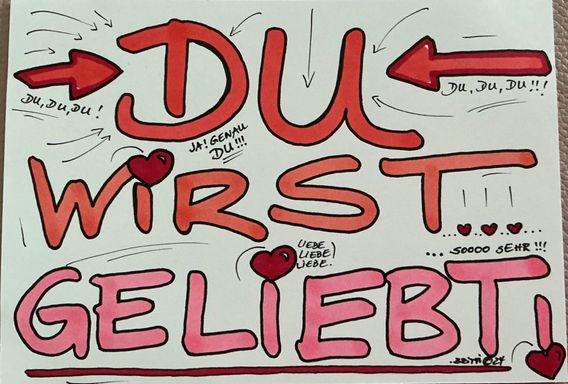 DU
DU, DU, DU!
DU, DU, DU!!!
JA! GENAU
DU!!!
WiRST
... SOOOO SEHR!!!
LIEBE,
LIEBE,
LIEBE.
GELIEBT!